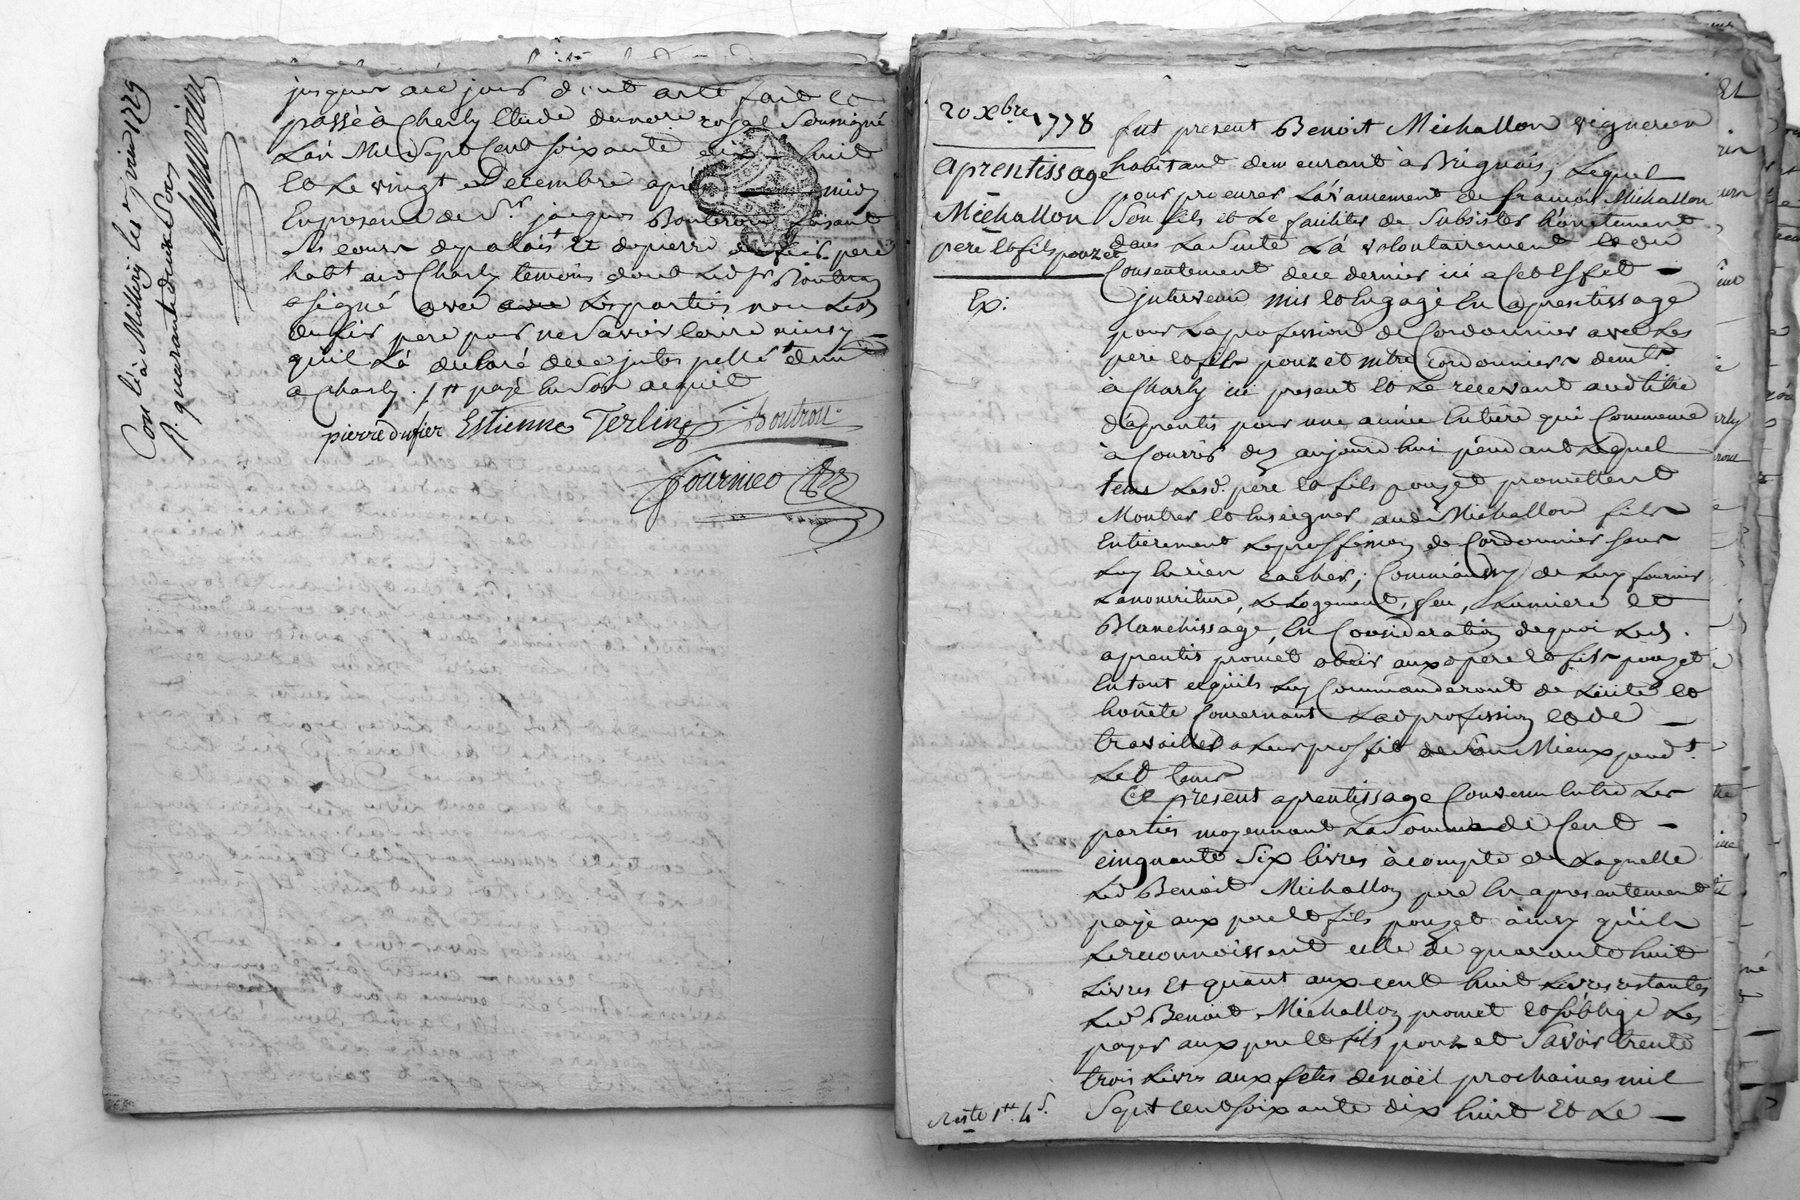 jusques au jour d'ent acte fait et
passé à Charly Etude du nore royal soussigné
L'an Mil Sept Cent soixante dix-huit
et Le vingt Decembre apres midy
En presence de Sr. jacques Boutron
du cours de palais et de pierre pere
habt aud Charly temoins dont Led Sr Boutron
a signé avec Les parties non Led
dufier pere pour ne Savoir Ecrire ainsy
qu'il L'a declaré de ce
a Charly
pierre dufier Estienne Terling Boutron
Fournier
Conlé à Millery les 1779
R. quarante deux sols
20 Xbre 1778
aprentissage
Michallon
pere et fils pouzet
Ex:
fut present Benoit Michallon vigneron
habitant demeurant à Brignais, Lequel
pour procurer L'avancement de françois Michallon
Son fils et Le faciliter de Subsister honetement
dans La Suite L'a volontairement et du
Consentement de ce dernier ici a Cet Effet
intervenu mis et Engagé En aprentissage
pour La profession de Cordonnier avec Les
pere et fils pouzet mtre Cordonniers demts
à Charly ici present et Le recevant audt titre
d'aprentis pour une année Entiere qui Commence
à Courrir dez aujourd'hui pendant Lequel
tems Lesd. pere et fils pouzet promettent
Montrer et Enseigner aud. Michallon fils
Entierement La proffession de Cordonnier sans
Luy En rien cacher, de Luy fournir
La nourriture, Le Logement, feu, Lumiere et
Blanchissage, En Consideration de quoi Led.
aprentis promet obeir aux pere et fils pouzet
En tout ce qu'ils Luy Commanderont de Licite et
honète Concernant Lad profession et de
travailler a Leur proffit de Son Mieux pendt.
Led tems
Ce present aprentissage Convenu Entre Les
parties moyennant La Somme de Cent
cinquante Six livres à compte de Laquelle
Led Benoit Michallon pere En a presentement
payé aux pere et fils pouzet ainsy qu'ils
Le reconnoissent celle de quarante huit
Livres Et quant aux cent huit Livres restantes
Led Benoit Michallon promet et s'oblige Les
payer aux pere et fils pouzet Savoir trente
trois Livres aux fetes de noël prochaines mil
Sept cent soixante dix huit Et Le
Reste 1tt 4s.